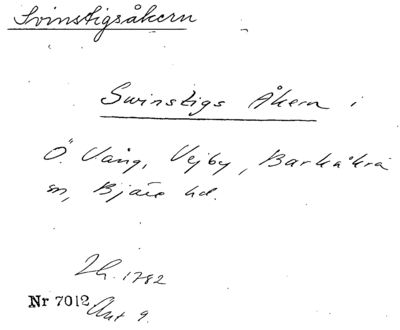 Svinstigsåkern
Swinstigs Åkern i
Ö. Vång, Vejby, Barkåkra
sn, Bjäre hd.
Lh. 1782
Nr 7012. Akt 9.